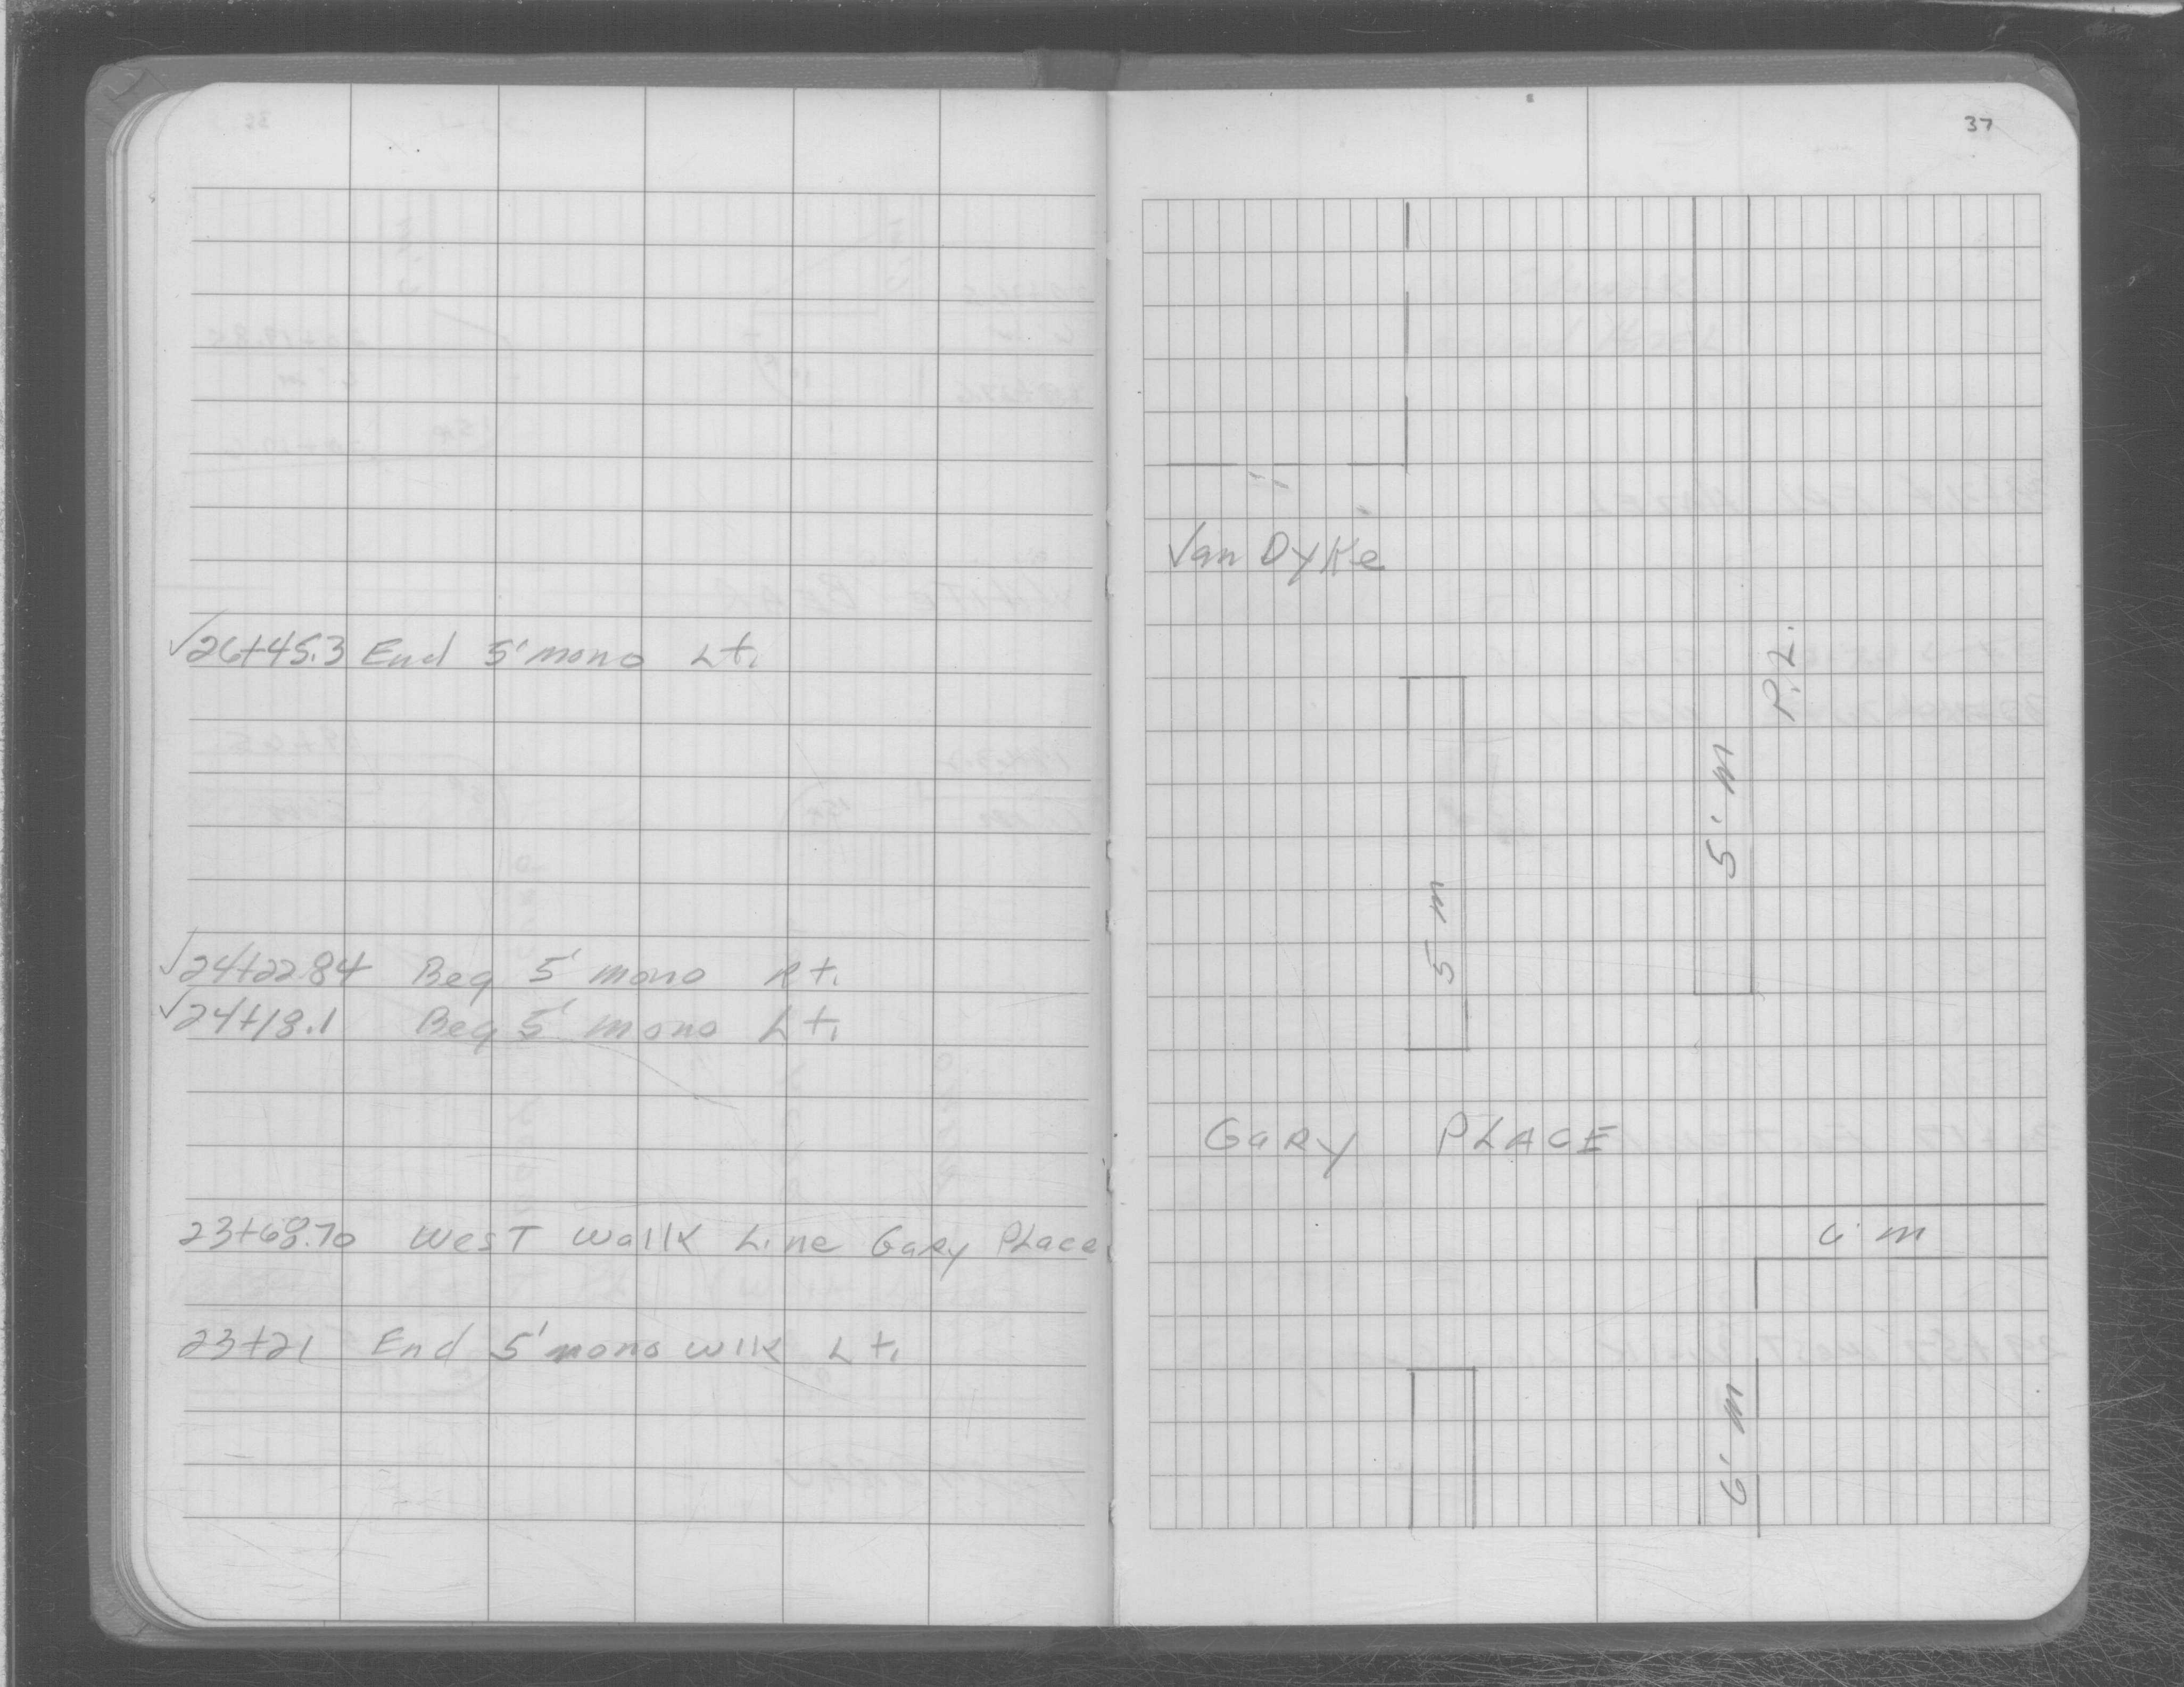 √26+45.3 End 5' mono Lt.
√24+22.84 Beg 5' mono Rt.
√24+18.1 Beg 5' mono Lt.
23+68.70 West Wallk Line Gary Place
23+21 End 5' mono wlk Lt.
37
Van Dyke
P.L.
5' m
5 m
Gary PLACE
6' m
6' m